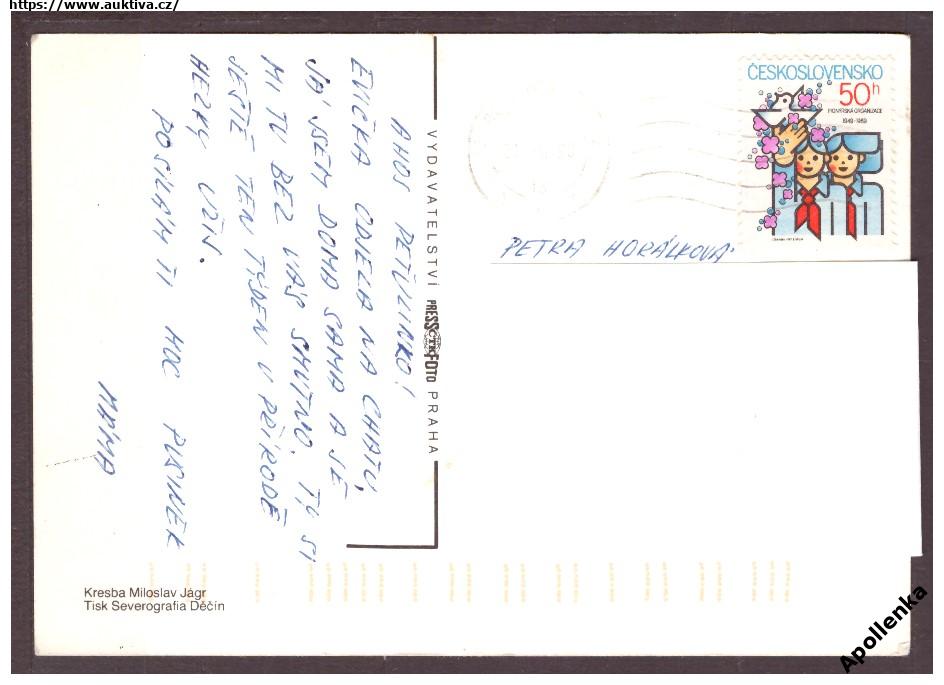 https://www.auktiva.cz/
AHOJ PETULINKO!
EVIČKA ODJELA NA CHATU,
JÁ JSEM DOMA SAMA A JE
MI TU BEZ VÁS SMUTNO. TY SI
JEŠTĚ TEN TÝDEN V PŘÍRODĚ
HEZKY UŽIJ.
POSÍLÁM TI MOC PUSINEK
MÁMA
VYDAVATELSTVÍ PRESSFOTO PRAHA
ČTK
ČESKOSLOVENSKO
50h
PIONÝRSKÁ ORGANIZACE
1949-1989
PETRA HORÁLKOVÁ
Kresba Miloslav Jágr
Tisk Severografia Děčín
Apollenka